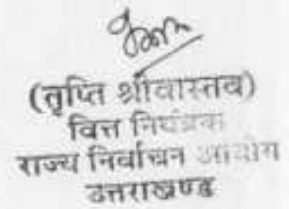 (तृप्ति श्रीवास्तव)
वित्त नियंत्रक
राज्य निर्वाचन आयोग
उत्तराखण्ड